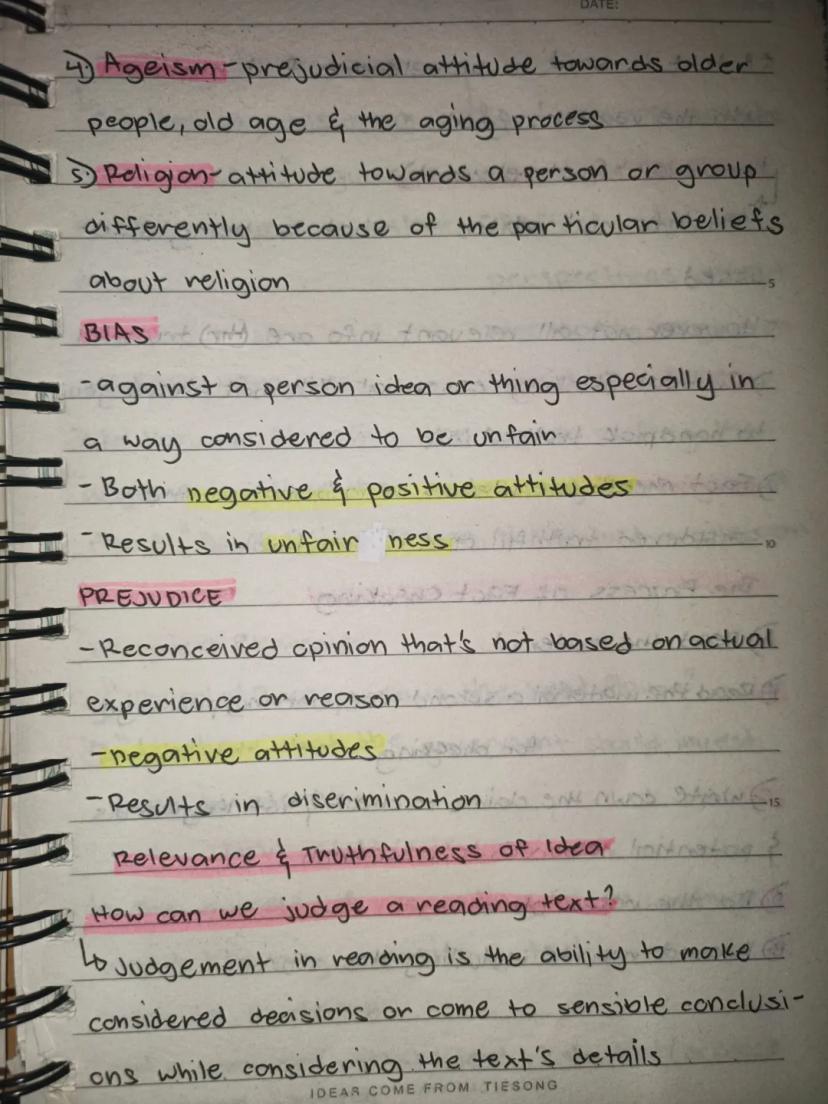 DATE:
4) Ageism - prejudicial attitude towards older
people, old age & the aging process
5) Religion - attitude towards a person or group
differently because of the particular beliefs
about religion
5
BIAS
- against a person idea or thing especially in
a way considered to be unfair
- Both negative & positive attitudes
- Results in unfair ness
10
PREJUDICE
- Reconceived opinion that's not based on actual
experience or reason
- negative attitudes
- Results in discrimination
15
Relevance & Truthfulness of Idea
How can we judge a reading text?
↳ Judgement in reading is the ability to make
considered decisions or come to sensible conclusi-
ons while considering the text's details
IDEAR COME FROM TIESONG